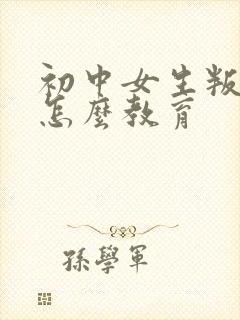 初中女生叛
怎麽教育
孫學軍